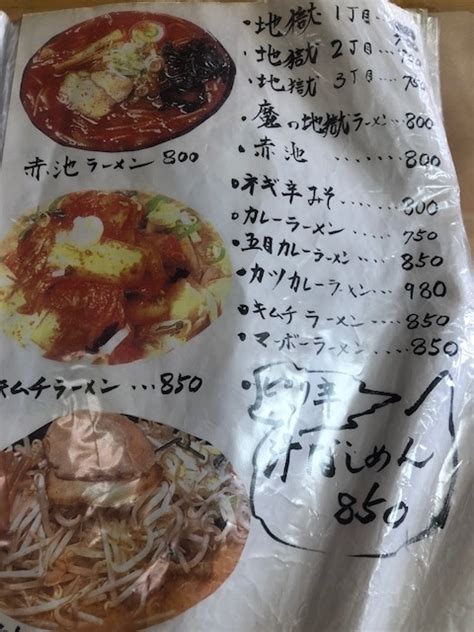 ・地獄 1丁目
・地獄 2丁目
・地獄 3丁目 … 750
・魔の地獄ラーメン … 800
・赤池 ……… 800
・ネギ辛みそ … 800
・カレーラーメン …… 750
・五目カレーラーメン … 850
・カツカレーラーメン … 980
・キムチラーメン …… 850
・マーボーラーメン …… 850
赤池ラーメン 800
キムチラーメン … 850
850